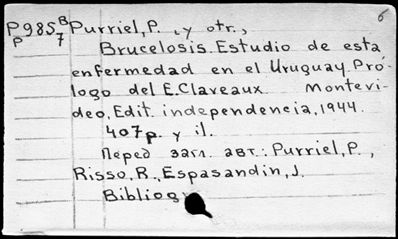 б
P985 B Purriel, P. , y otr.,
P 7 Brucelosis. Estudio de esta
enfermedad en el Uruguay. Pró-
logo del E. Claveaux. Montevi-
deo, Edit. independencia, 1944.
407 p. y il.
Перед загл. авт.: Purriel, P.,
Risso, R., Espasandin, J.
Bibliog